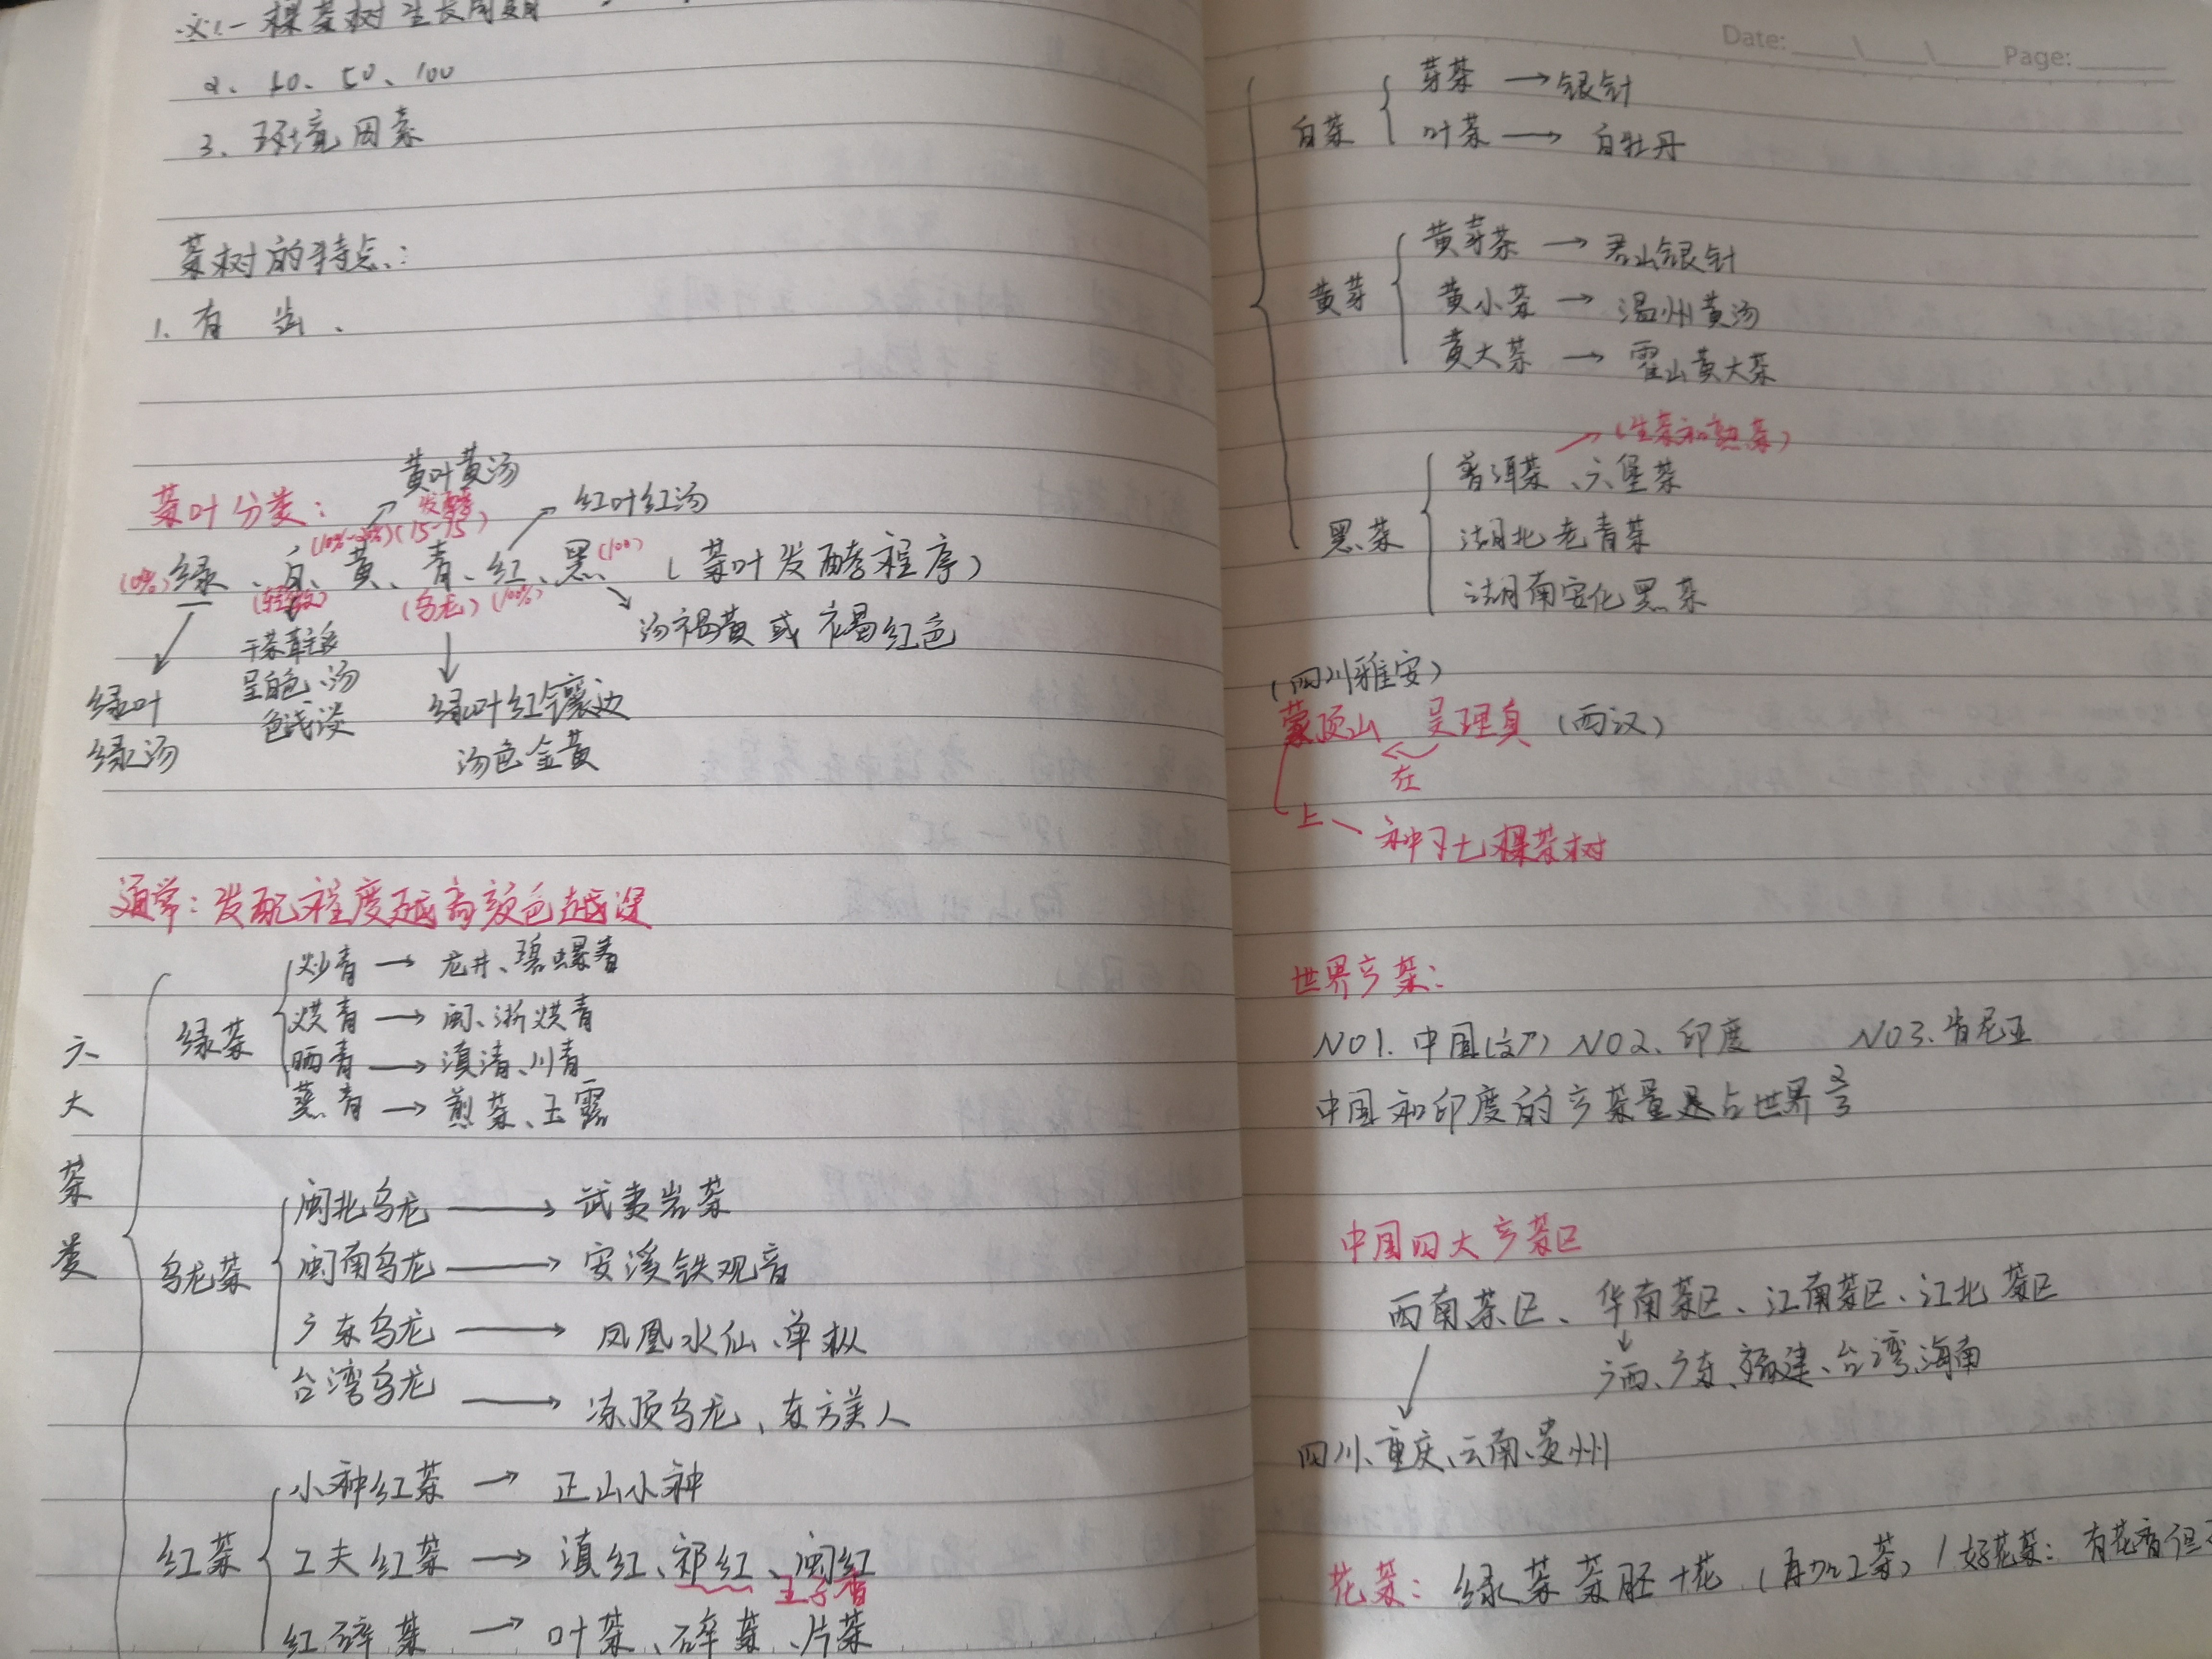 一棵茶树生长周期
2、10、50、100
3、环境因素
茶树的特点：
1、有 齿、
黄叶黄汤
茶叶分类：
发酵
红叶红汤
(10%-20%)(15-75)
(0%)绿、白、黄、青、红、黑(100) (茶叶发酵程序)
(轻微) (乌龙)(100%)
汤褐黄或褐红色
干茶
呈白色、汤
色浅淡
绿叶
绿汤
绿叶红镶边
汤色金黄
通常：发酵程度越高颜色越深
六大茶类
绿茶
炒青→龙井、碧螺春
烘青→闽、浙烘青
晒青→滇清、川青
蒸青→煎茶、玉露
乌龙茶
闽北乌龙→武夷岩茶
闽南乌龙→安溪铁观音
广东乌龙→凤凰水仙、单枞
台湾乌龙→冻顶乌龙、东方美人
红茶
小种红茶→正山小种
工夫红茶→滇红、祁红、闽红
王子香
红碎茶→叶茶、碎茶、片茶
Date: Page:
白茶
芽茶→银针
叶茶→白牡丹
黄芽
黄芽茶→君山银针
黄小茶→温州黄汤
黄大茶→霍山黄大茶
黑茶
(生茶和熟茶)
普洱茶、六堡茶
湖北老青茶
湖南安化黑茶
(四川雅安)
蒙顶山 吴理真(西汉)
在
上 种下七棵茶树
世界产茶：
NO1.中国 NO2、印度 NO3.肯尼亚
中国和印度的产茶量是占世界2/3
中国四大产茶区
西南茶区、华南茶区、江南茶区、江北茶区
广西、广东、福建、台湾、海南
四川、重庆、云南、贵州
花茶：绿茶茶胚+花(再加工茶) 好花茶：有花香但